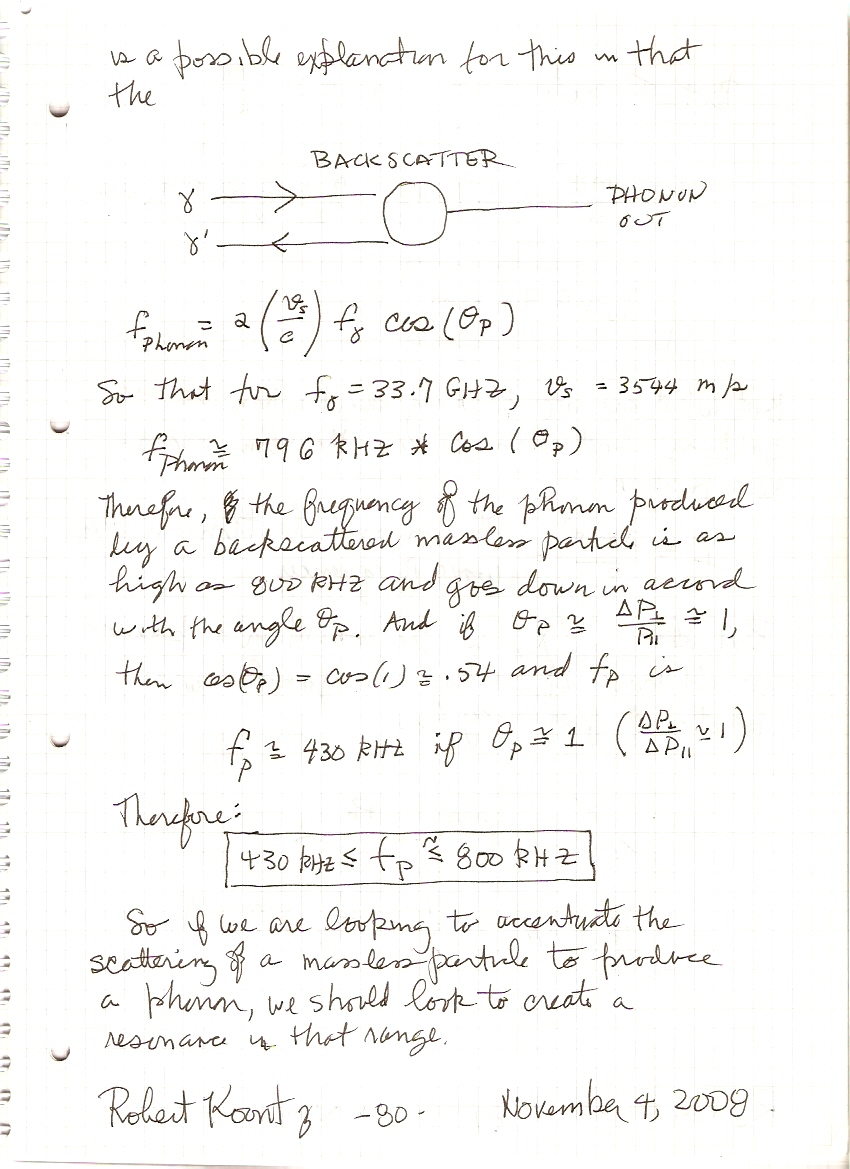 is a possible explanation for this in that
the
BACKSCATTER
γ
PHONON
OUT
γ'
f_Phonon = 2 (v_s/c) f_γ cos(θ_P)
So that for f_γ = 33.7 GHZ, v_s = 3544 m/s
f_Phonon ≅ 796 kHZ * Cos (θ_P)
Therefore, the frequency of the phonon produced
by a backscattered massless particle is as
high as 800 kHZ and goes down in accord
with the angle θ_P. And if θ_P ≅ ΔP⊥/P∥ ≅ 1,
then cos(θ_P) = cos(1) ≅ .54 and f_P is
f_P ≅ 430 kHz if θ_P ≅ 1 (ΔP⊥/ΔP∥ ≅ 1)
Therefore:
430 kHz ≤ f_P ≲ 800 kHZ
So if we are looking to accentuate the
scattering of a massless particle to produce
a phonon, we should look to create a
resonance in that range.
Robert Koontz -80- November 4, 2008